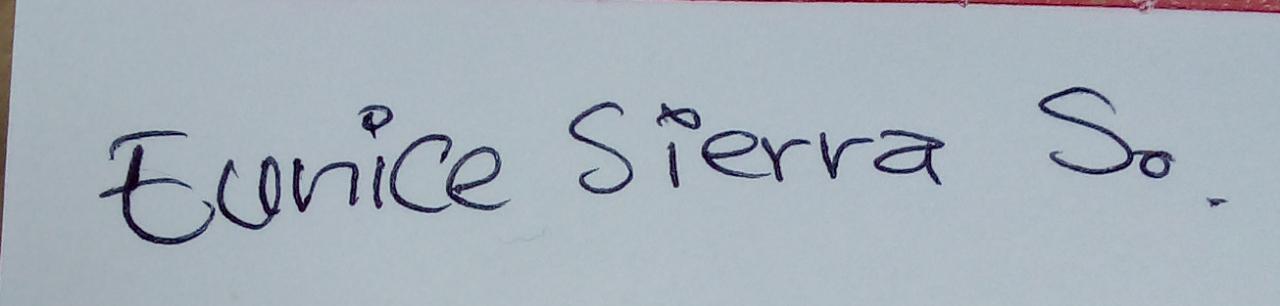 Eunice Sierra S.